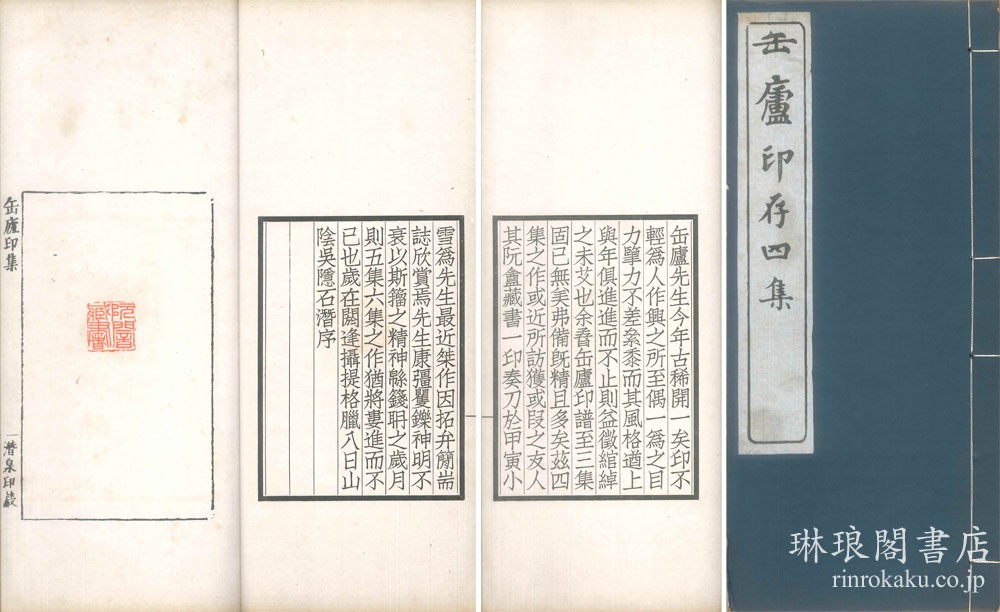 缶廬印存四集
缶廬先生今年古稀開一矣印不
輕爲人作興之所至偶一爲之目
力擘力不差絫黍而其風格遒上
與年俱進進而不止則益徵綰綽
之未艾也余缶廬印譜至三集
固已無美弗備旣精且多矣茲四
集之作或近所訪獲或叚之友人
其阮盦藏書一印奏刀於甲寅小
雪爲先生最近桀作因拓弁簡耑
誌欣賞焉先生康彊矍鑠神明不
衰以斯籀之精神緜籛耼之歲月
則五集六集之作猶將婁進而不
已也歲在閼逢攝提格臘八日山
陰吳隱石潛序
缶廬印集
一
潛泉印叢
琳琅閣書店
rinrokaku.co.jp